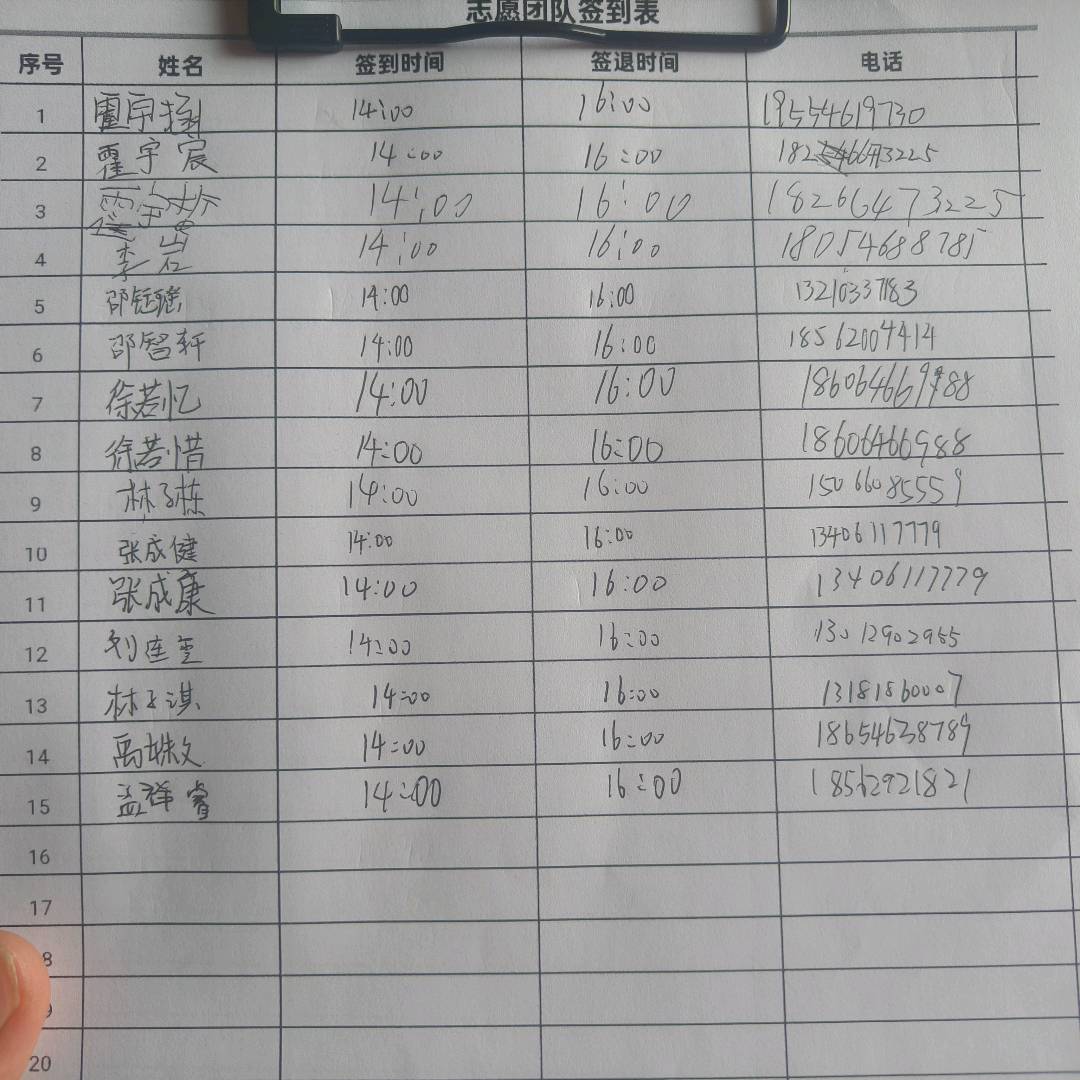 志愿团队签到表
序号 姓名 签到时间 签退时间 电话
1 霍宇 14:00 16:00 19554619730
2 霍宇宸 14:00 16:00
3 14:00 16:00 18266473225
4 李岩 14:00 16:00 18054688785
5 邵钰 14:00 16:00 13210337183
6 邵智轩 14:00 16:00 18562004414
7 徐若忆 14:00 16:00
8 徐若惜 14:00 16:00 18606466988
9 林子栋 14:00 16:00 15066085559
10 张成健 14:00 16:00 13406117779
11 张成康 14:00 16:00 13406117779
12 刘连 14:00 16:00 13012902985
13 林子淇 14:00 16:00 13181860007
14 禹姝文 14:00 16:00 18654638789
15 孟祥睿 14:00 16:00 18562921821
16
17
8
9
20